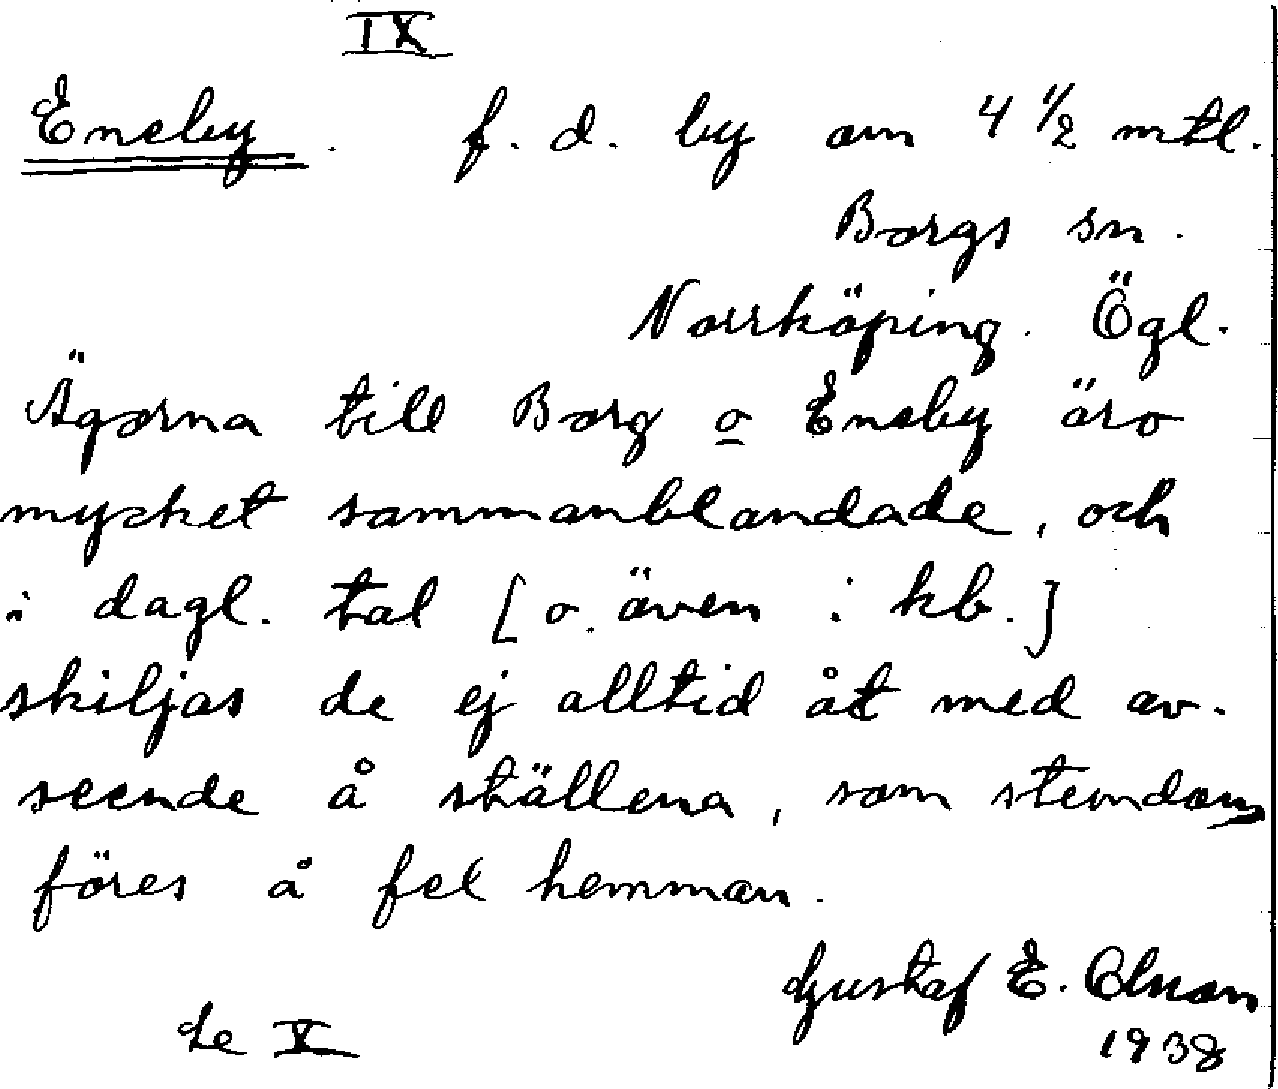 IX
Eneby. f. d. by om 4 1/2 mtl.
Borgs sn.
Norrköping. Ögl.
Ägorna till Borg o Eneby äro
mycket sammanblandade, och
i dagl. tal [o. även i kb.]
skiljas de ej alltid åt med av-
seende å ställena, som stundom
föres å fel hemman.
Gustaf E. Olsson
Se V 1938